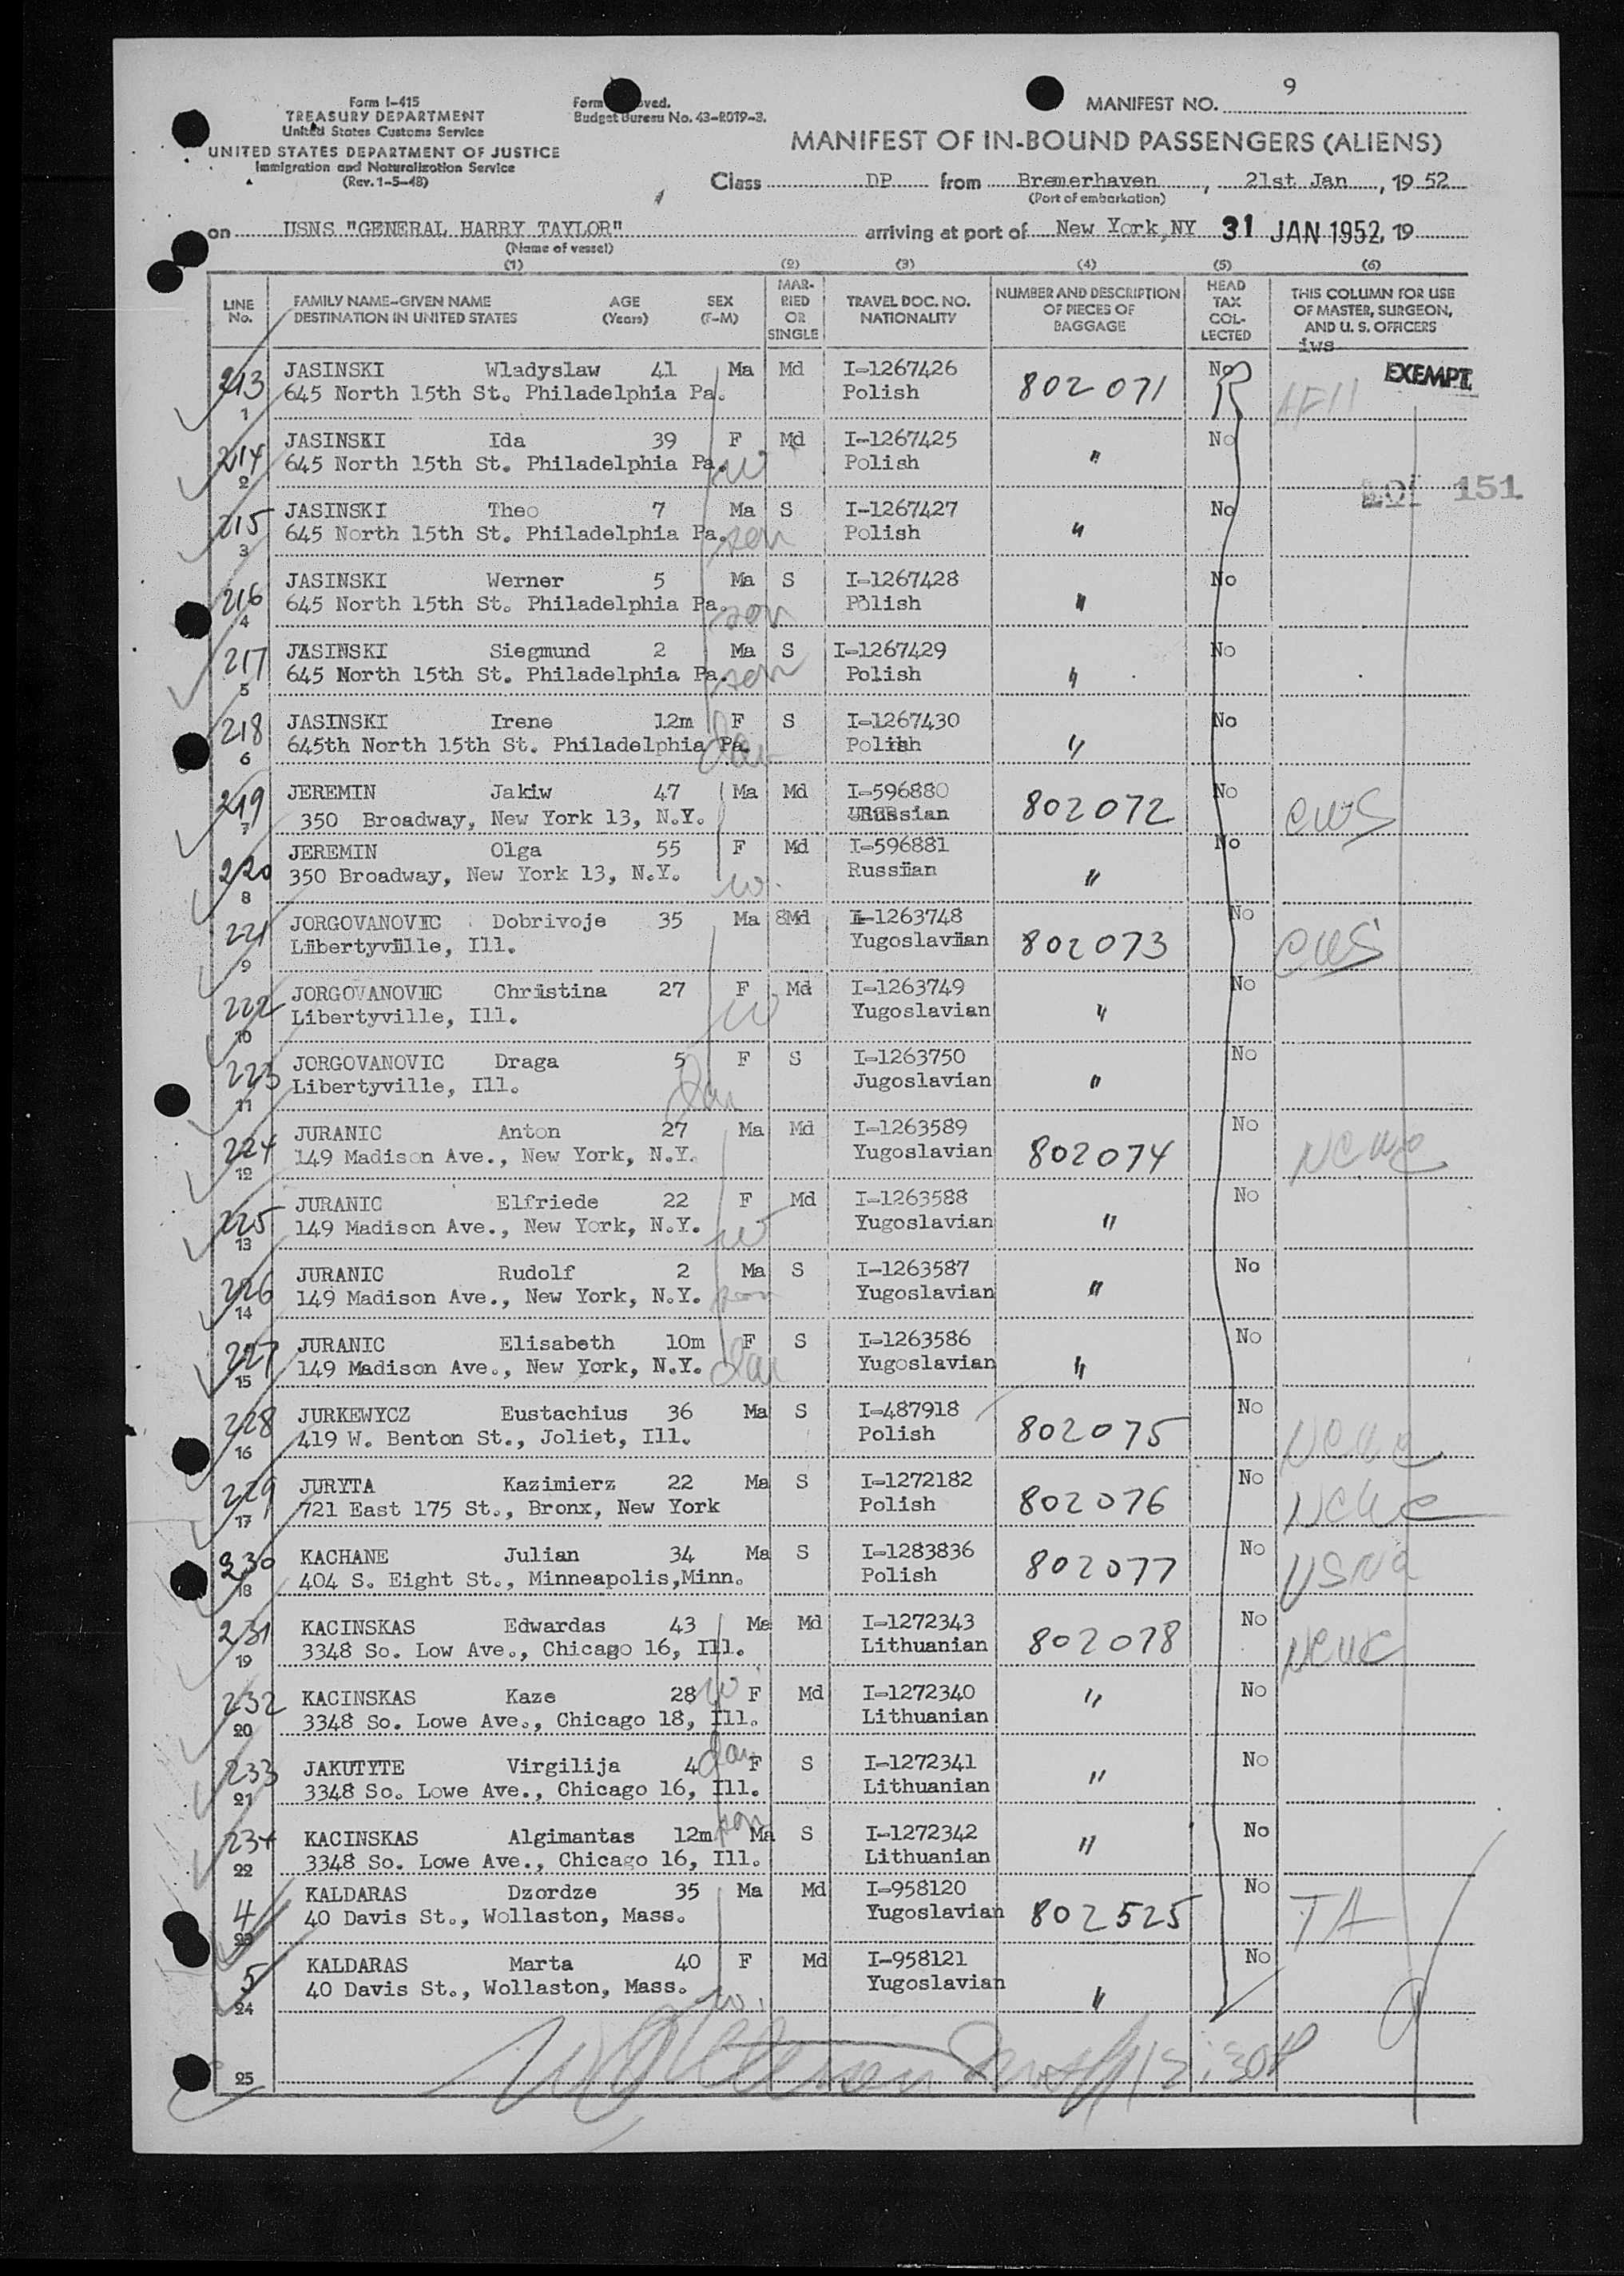 Form I-415
TREASURY DEPARTMENT
United States Customs Service
UNITED STATES DEPARTMENT OF JUSTICE
Immigration and Naturalization Service
(Rev. 1-5-48)
Budget Bureau No. 43-R019-3.
MANIFEST NO. 9
MANIFEST OF IN-BOUND PASSENGERS (ALIENS)
Class DP from Bremerhaven, 21st Jan, 19 52
(Port of embarkation)
on USNS "GENERAL HARRY TAYLOR" arriving at port of New York, NY 31 JAN 1952, 19
(Name of vessel)
(1) (2) (3) (4) (5) (6)
LINE No. FAMILY NAME-GIVEN NAME DESTINATION IN UNITED STATES AGE (Years) SEX (F-M) MARRIED OR SINGLE TRAVEL DOC. NO. NATIONALITY NUMBER AND DESCRIPTION OF PIECES OF BAGGAGE HEAD TAX COLLECTED THIS COLUMN FOR USE OF MASTER, SURGEON, AND U. S. OFFICERS
iws
213 JASINSKI Wladyslaw 41 Ma Md I-1267426 802071 No EXEMPT
1 645 North 15th St. Philadelphia Pa. Polish
214 JASINSKI Ida 39 F Md I-1267425 " No
2 645 North 15th St. Philadelphia Pa. w Polish
151
215 JASINSKI Theo 7 Ma S I-1267427 " No
3 645 North 15th St. Philadelphia Pa. son Polish
216 JASINSKI Werner 5 Ma S I-1267428 " No
4 645 North 15th St. Philadelphia Pa. son Polish
217 JASINSKI Siegmund 2 Ma S I-1267429 " No
5 645 North 15th St. Philadelphia Pa. son Polish
218 JASINSKI Irene 12m F S I-1267430 " No
6 645th North 15th St. Philadelphia Pa. dau Polish
219 JEREMIN Jakiw 47 Ma Md I-596880 802072 No CWS
7 350 Broadway, New York 13, N.Y. Russian
220 JEREMIN Olga 55 F Md I-596881 " No
8 350 Broadway, New York 13, N.Y. w. Russian
221 JORGOVANOVIC Dobrivoje 35 Ma Md I-1263748 802073 No CWS
9 Libertyville, Ill. Yugoslavian
222 JORGOVANOVIC Christina 27 F Md I-1263749 " No
10 Libertyville, Ill. w Yugoslavian
223 JORGOVANOVIC Draga 5 F S I-1263750 " No
11 Libertyville, Ill. dau Jugoslavian
224 JURANIC Anton 27 Ma Md I-1263589 802074 No NCWC
12 149 Madison Ave., New York, N.Y. Yugoslavian
225 JURANIC Elfriede 22 F Md I-1263588 " No
13 149 Madison Ave., New York, N.Y. w Yugoslavian
226 JURANIC Rudolf 2 Ma S I-1263587 " No
14 149 Madison Ave., New York, N.Y. son Yugoslavian
227 JURANIC Elisabeth 10m F S I-1263586 " No
15 149 Madison Ave., New York, N.Y. dau Yugoslavian
228 JURKEWYCZ Eustachius 36 Ma S I-487918 802075 No NCWC
16 419 W. Benton St., Joliet, Ill. Polish
229 JURYTA Kazimierz 22 Ma S I-1272182 802076 No NCWC
17 721 East 175 St., Bronx, New York Polish
230 KACHANE Julian 34 Ma S I-1283836 802077 No
18 404 S. Eight St., Minneapolis,Minn. Polish
231 KACINSKAS Edwardas 43 Ma Md I-1272343 802078 No NCWC
19 3348 So. Low Ave., Chicago 16, Ill. Lithuanian
232 KACINSKAS Kaze 28 w F Md I-1272340 " No
20 3348 So. Lowe Ave., Chicago 18, Ill. Lithuanian
233 JAKUTYTE Virgilija 4 dau F S I-1272341 " No
21 3348 So. Lowe Ave., Chicago 16, Ill. Lithuanian
234 KACINSKAS Algimantas 12m son Ma S I-1272342 " No
22 3348 So. Lowe Ave., Chicago 16, Ill. Lithuanian
4 KALDARAS Dzordze 35 Ma Md I-958120 802525 No TA
23 40 Davis St., Wollaston, Mass. Yugoslavian
5 KALDARAS Marta 40 F Md I-958121 " No
24 40 Davis St., Wollaston, Mass. w. Yugoslavian
25